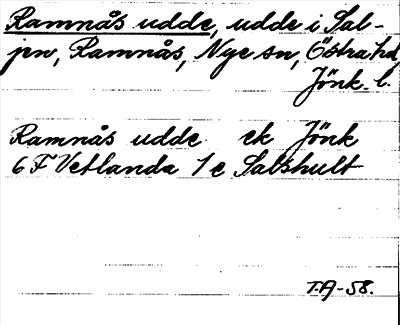 Ramnås udde, udde i Sal-
jen, Ramnås, Nye sn, Östra hd,
Jönk. l.
Ramnås udde ek Jönk
6 F Vetlanda 1 e Salshult
T.A-58.